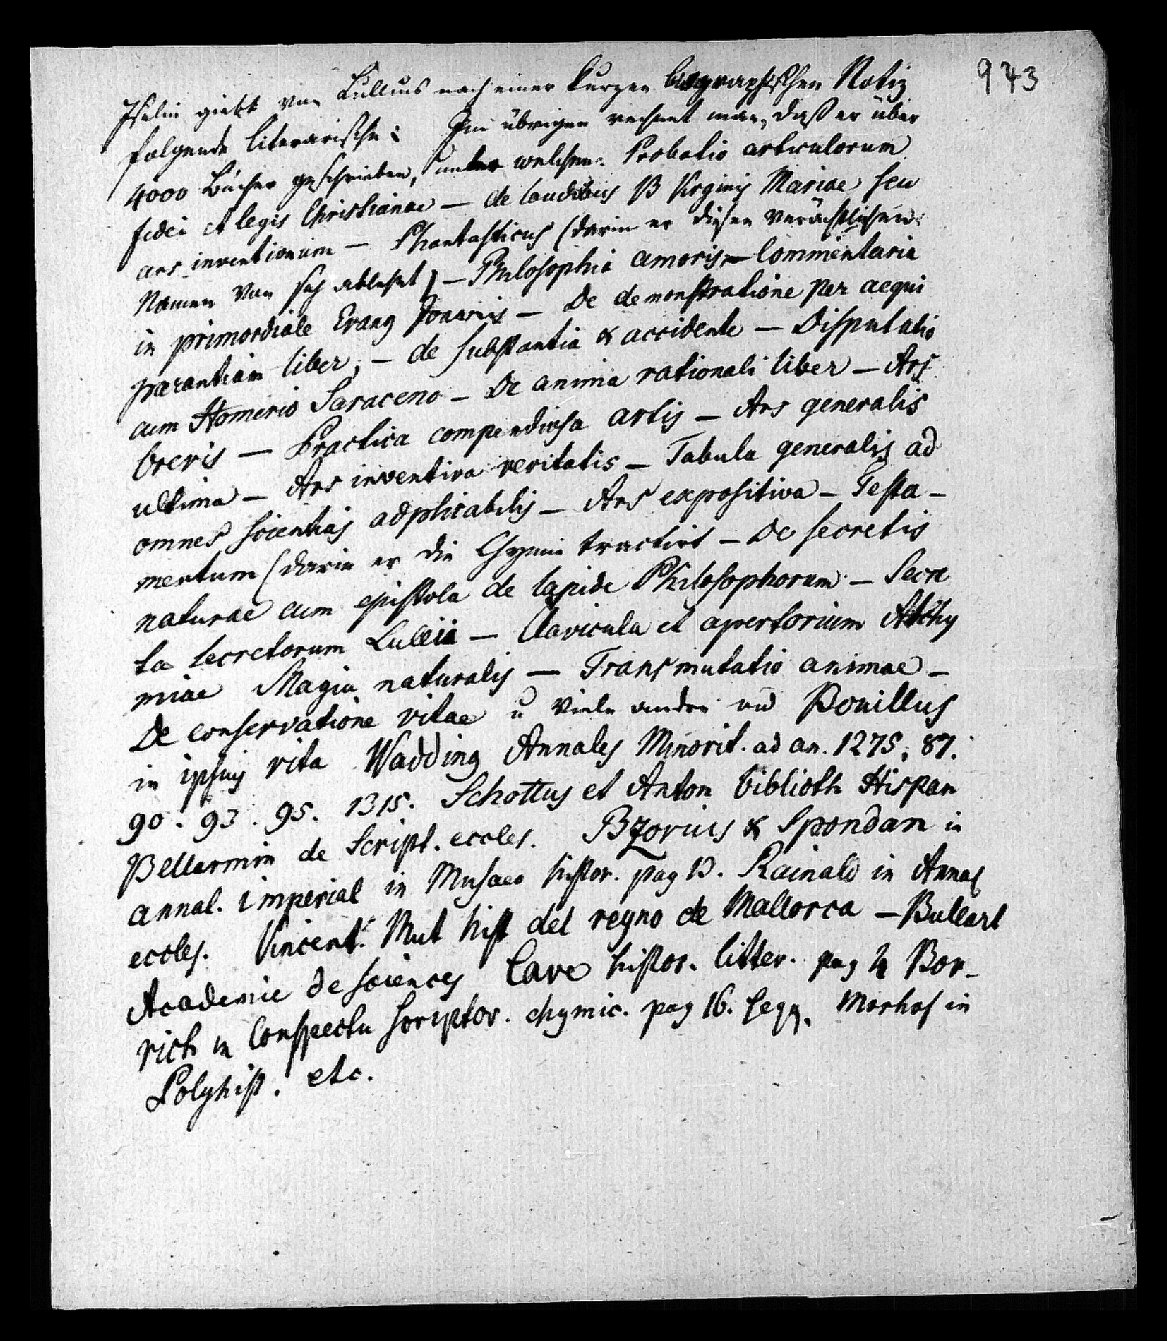 943
Iselin giebt von Lullius nach einer kurzen biographischen Notiz
folgende literarische: Im übrigen rechnet man, daß er über
4000 Bücher geschrieben, unter welchen: Probatio articulorum
fidei et legis Christianae — de laudibus B Virginis Mariae seu
ars inventionum — Phantasticus (darin er diesen verächtlichen
Namen von sich ablehnt) — Philosophia amoris — Commentaria
in primordiale Evang Joannis — De demonstratione per aequi
parantiam liber, — de substantia & accidente — Disputatio
cum Homerio Saraceno — De anima rationali liber — Ars
brevis — Practica compendiosa artis — Ars generalis
ultima — Ars inventiva veritatis — Tabula generalis ad
omnes scientias adplicabilis — Ars expositiva — Testa-
mentum (darin er die Chymie tractirt — De secretis
naturae cum epistola de lapide Philosophorum — Secre
ta secretorum Lullii — Clavicula et apertorium Alchy
miae Magia naturalis — Transmutatio animae —
De conservatione vitae u viele andre vid Bouillus
in ipsius vita Wadding Annales Minorit. ad an. 1275. 87.
90. 93. 95. 1315. Schottus et Anton biblioth Hispan
Bellarmin de Script. eccles. Bzovius & Spondan in
annal. imperial in Musaeo histor. pag 13. Rainald in Annal
eccles. Vincent. Mut hist del regno de Mallorca — Bullart
Academie de sciences Cave histor. litter. pag 4 Bor-
rich in Conspectu scriptor. chymic. pag 16. seqq. Morhof in
Polyhist. etc.